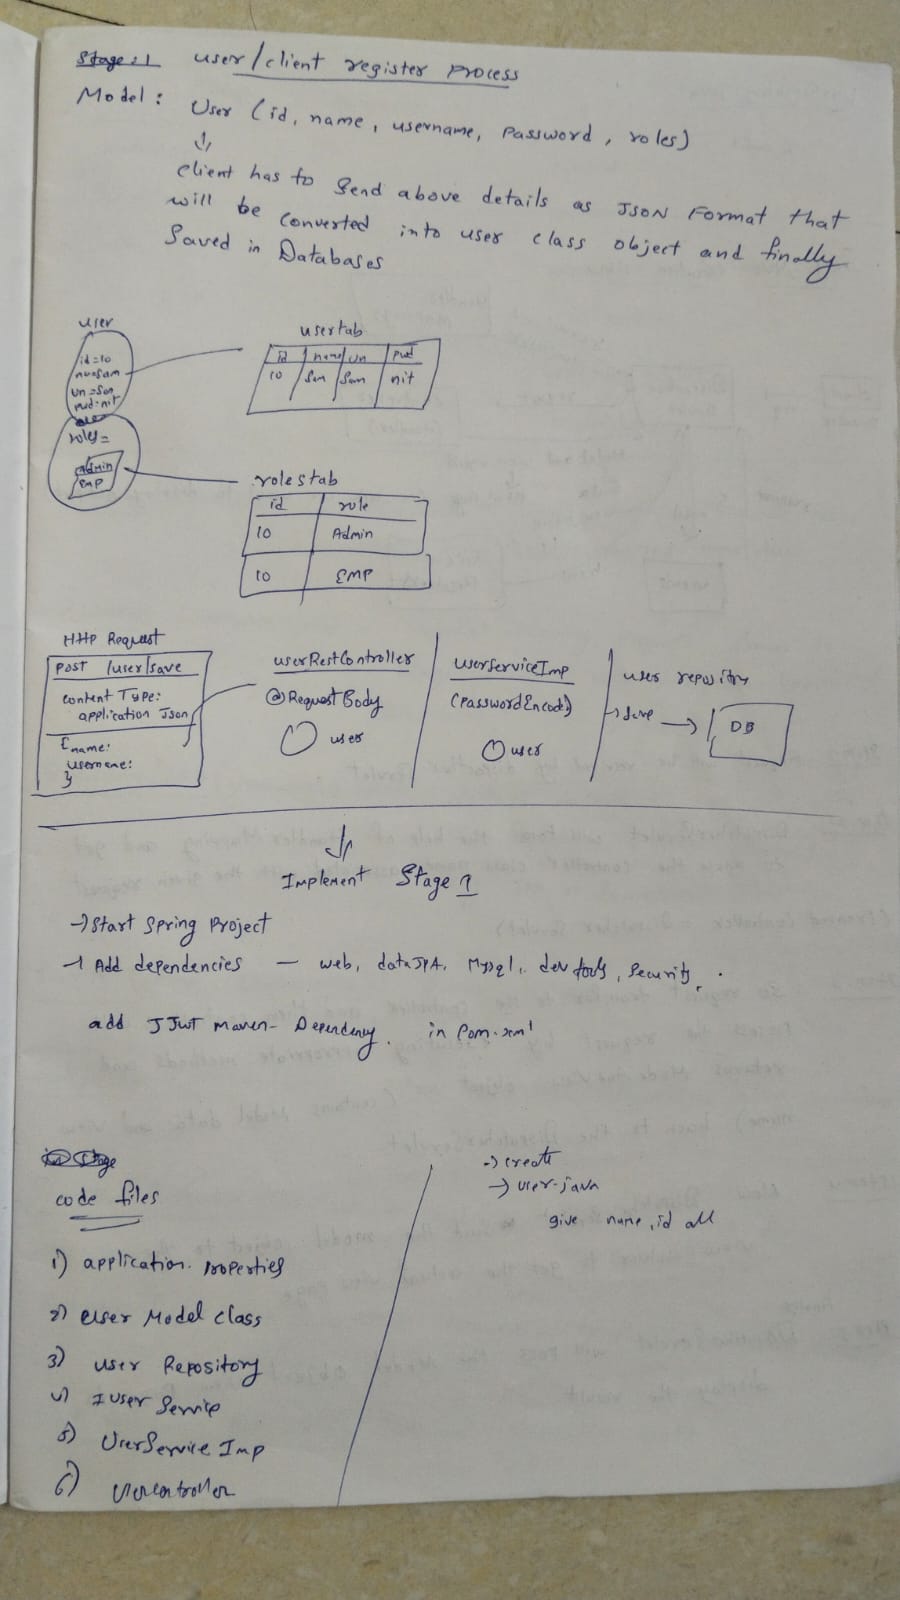 Stage:1 user/client register process
Model: User (id, name, username, password, roles)
client has to send above details as JSON Format that
will be converted into user class object and finally
Saved in Databases
user
id=10
un=Sam
pwd=nit
roles=
admin
EMP
usertab
id name un pwd
10 Sam Sam nit
rolestab
id role
10 Admin
10 EMP
HTTP Request
Post /user/save
content Type:
application Json
{name:
username:
}
userRestController
@RequestBody
user
userServiceImp
(PasswordEncode)
user
user repository
→ save → DB
Implement Stage 1
→ Start Spring Project
→ Add dependencies - web, dataJPA, Mysql, dev tools, Security.
add JJwt maven-Dependency. in Pom.xml
Stage
code files
1) application.properties
2) User Model class
3) user Repository
4) IUser Service
5) UserService Imp
6) Usercontroller
→ create
→ user.java
give name, id all